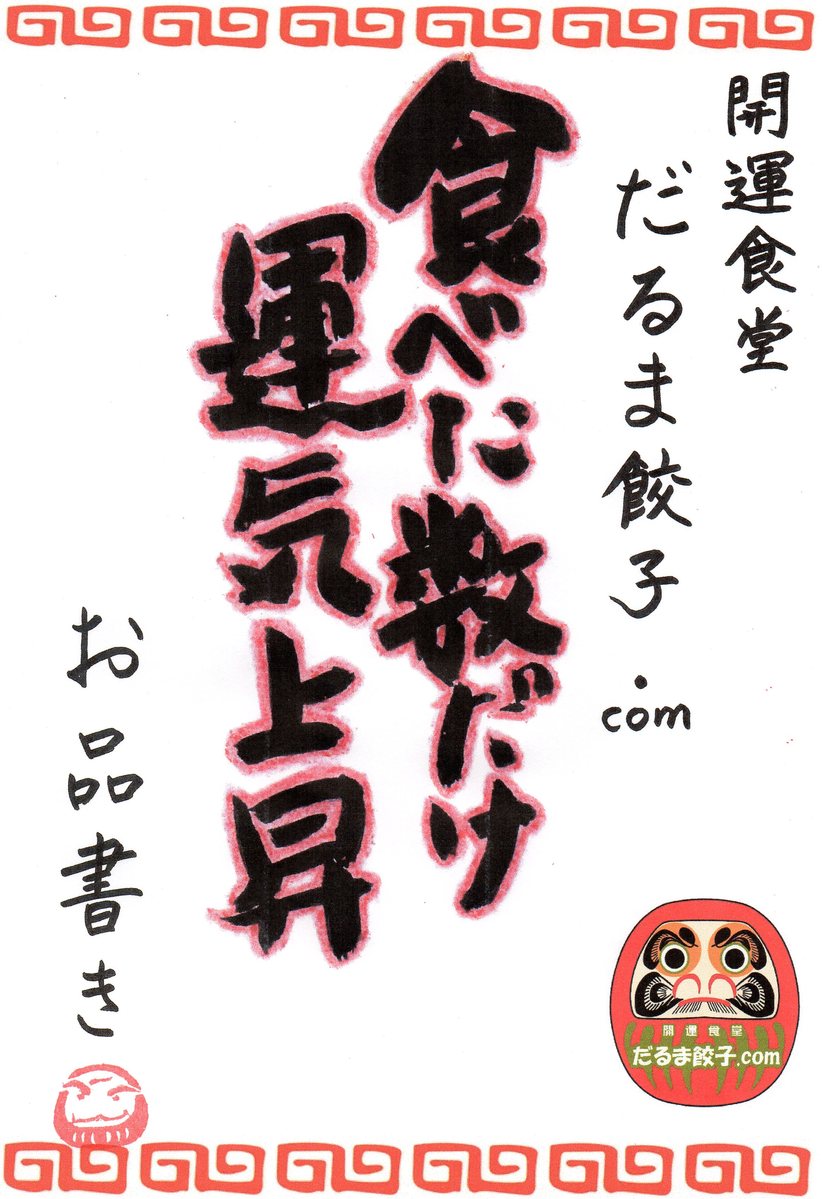 開運食堂
だるま餃子.com
食べた数だけ
運気上昇
お品書き
開運食堂
だるま餃子.com